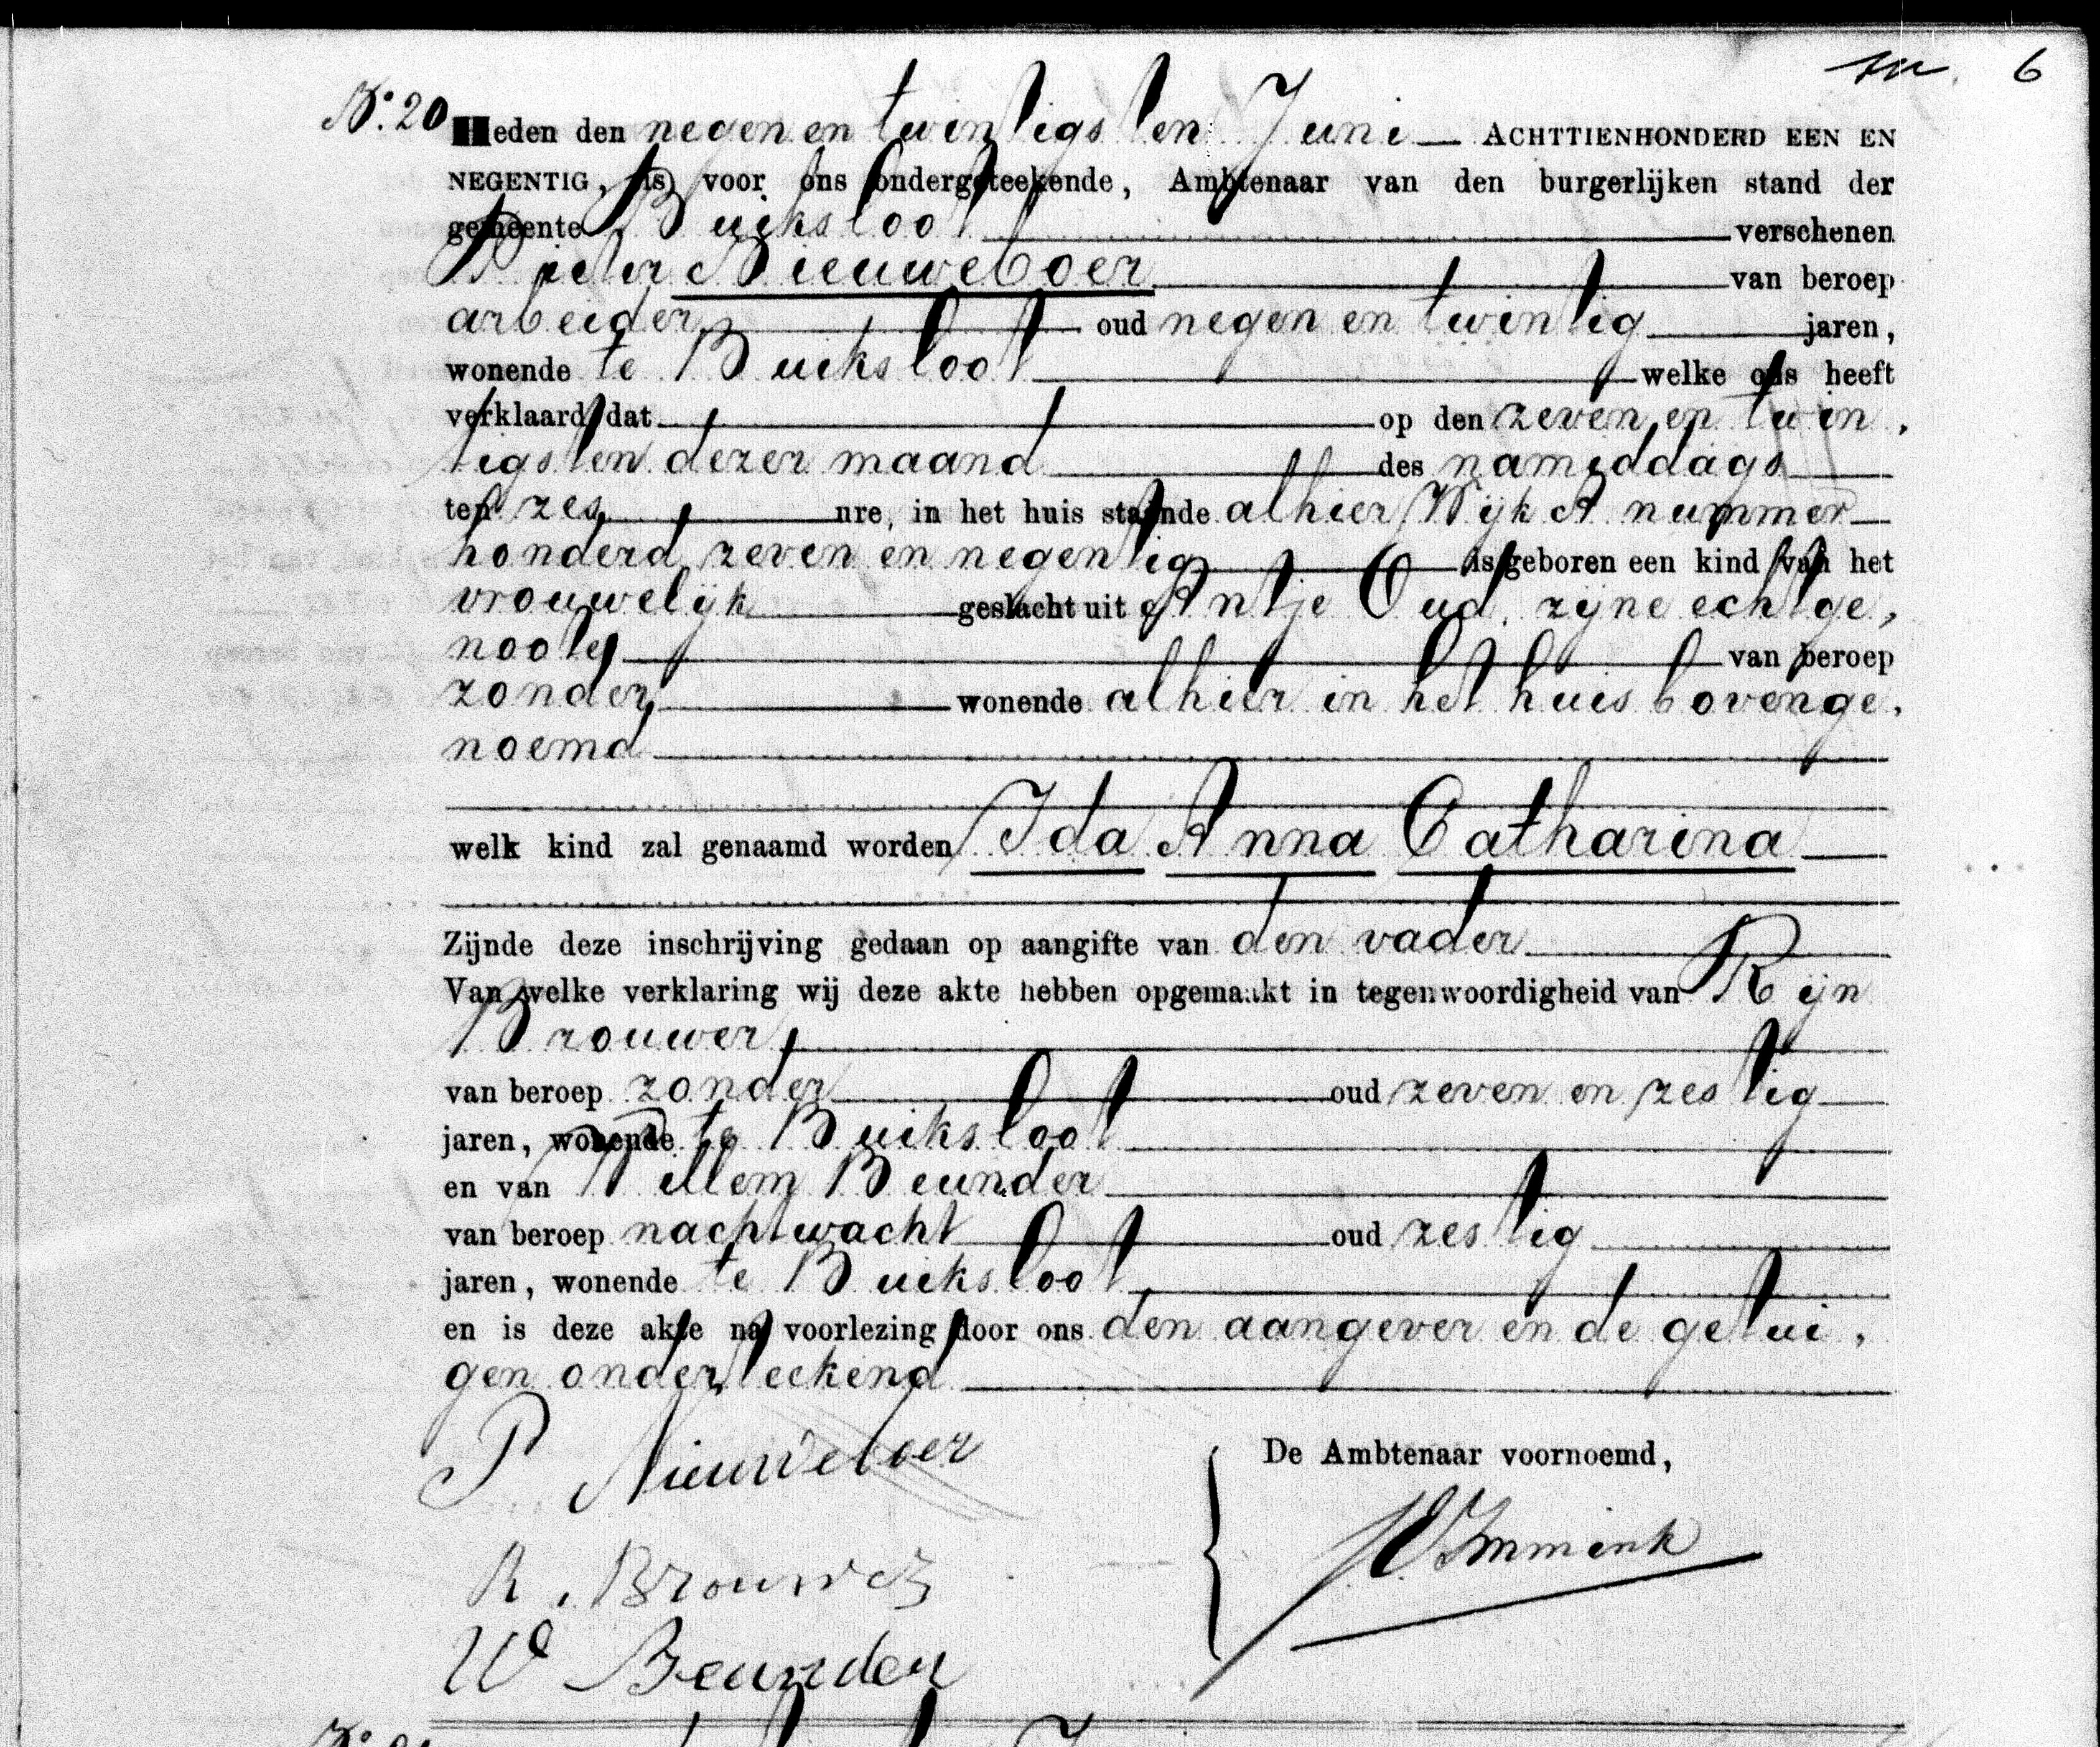 6
No. 20 Heden den negen en twintigsten Juni ACHTTIENHONDERD EEN EN
NEGENTIG, (is) voor ons ondergeteekende, Ambtenaar van den burgerlijken stand der
gemeente Buiksloot verschenen
Pieter Nieuweboer van beroep
arbeider, oud negen en twintig jaren,
wonende te Buiksloot welke ons heeft
verklaard dat op den zeven en twin,
tigsten dezer maand des namiddags
ten zes ure, in het huis staande alhier Wijk A nummer
honderd zeven en negentig is geboren een kind van het
vrouwelijk geslacht uit Antje Oud, zijne echtge,
noote, van beroep
zonder, wonende alhier in het huis bovenge,
noemd
welk kind zal genaamd worden Ida Anna Catharina
Zijnde deze inschrijving gedaan op aangifte van den vader
Van welke verklaring wij deze akte hebben opgemaakt in tegenwoordigheid van Rijn
Brouwer,
van beroep zonder oud zeven en zestig
jaren, wonende te Buiksloot
en van Willem Beunder
van beroep nachtwacht oud zestig
jaren, wonende te Buiksloot,
en is deze akte na voorlezing door ons den aangever en de getui,
gen onderteekend
P Nieuweboer
De Ambtenaar voornoemd,
Immink
R. Brouwer
W Beunder